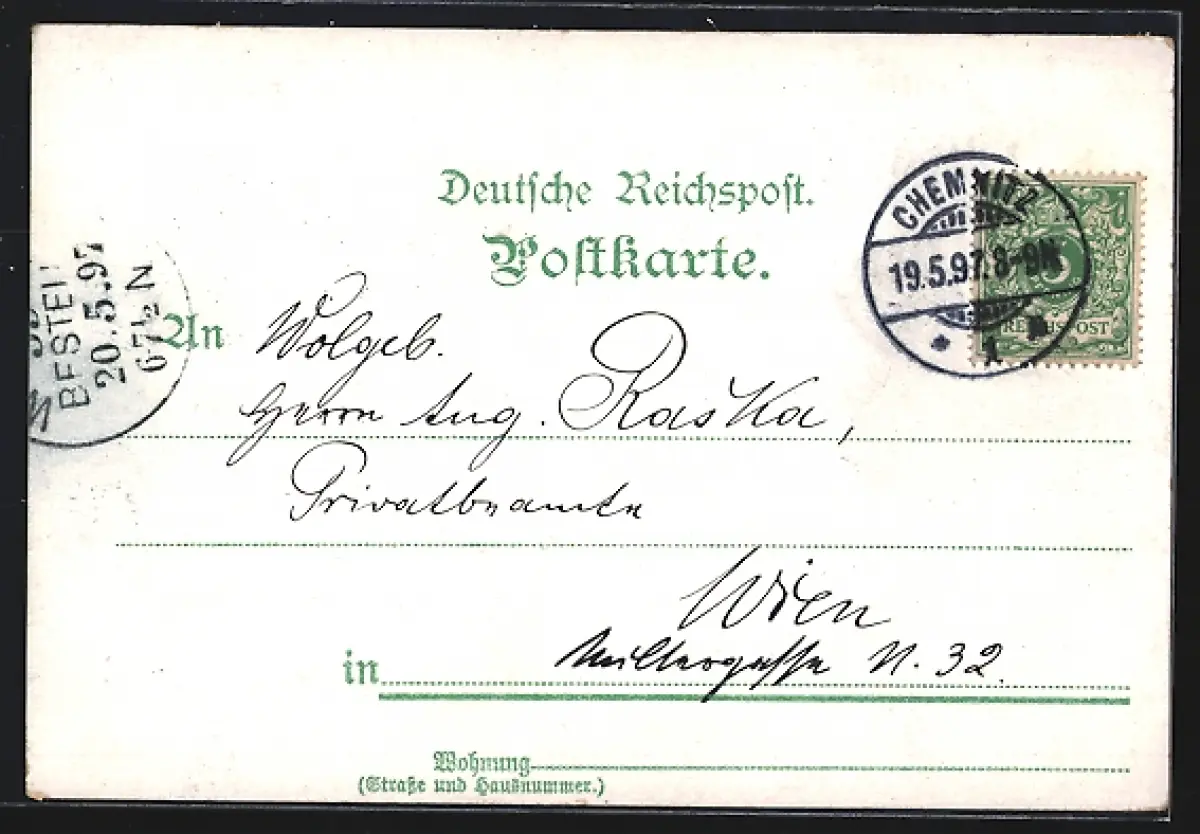 Deutsche Reichspost.
Postkarte.
CHEMNITZ
19.5.97. 8-9N
* 1
REICHSPOST
BESTEL
20.5.97
6-7½N
An Wolgeb.
Herrn Aug. Raska,
Privatbeamte
Wien
in N. 32.
Wohnung
(Straße und Hausnummer.)